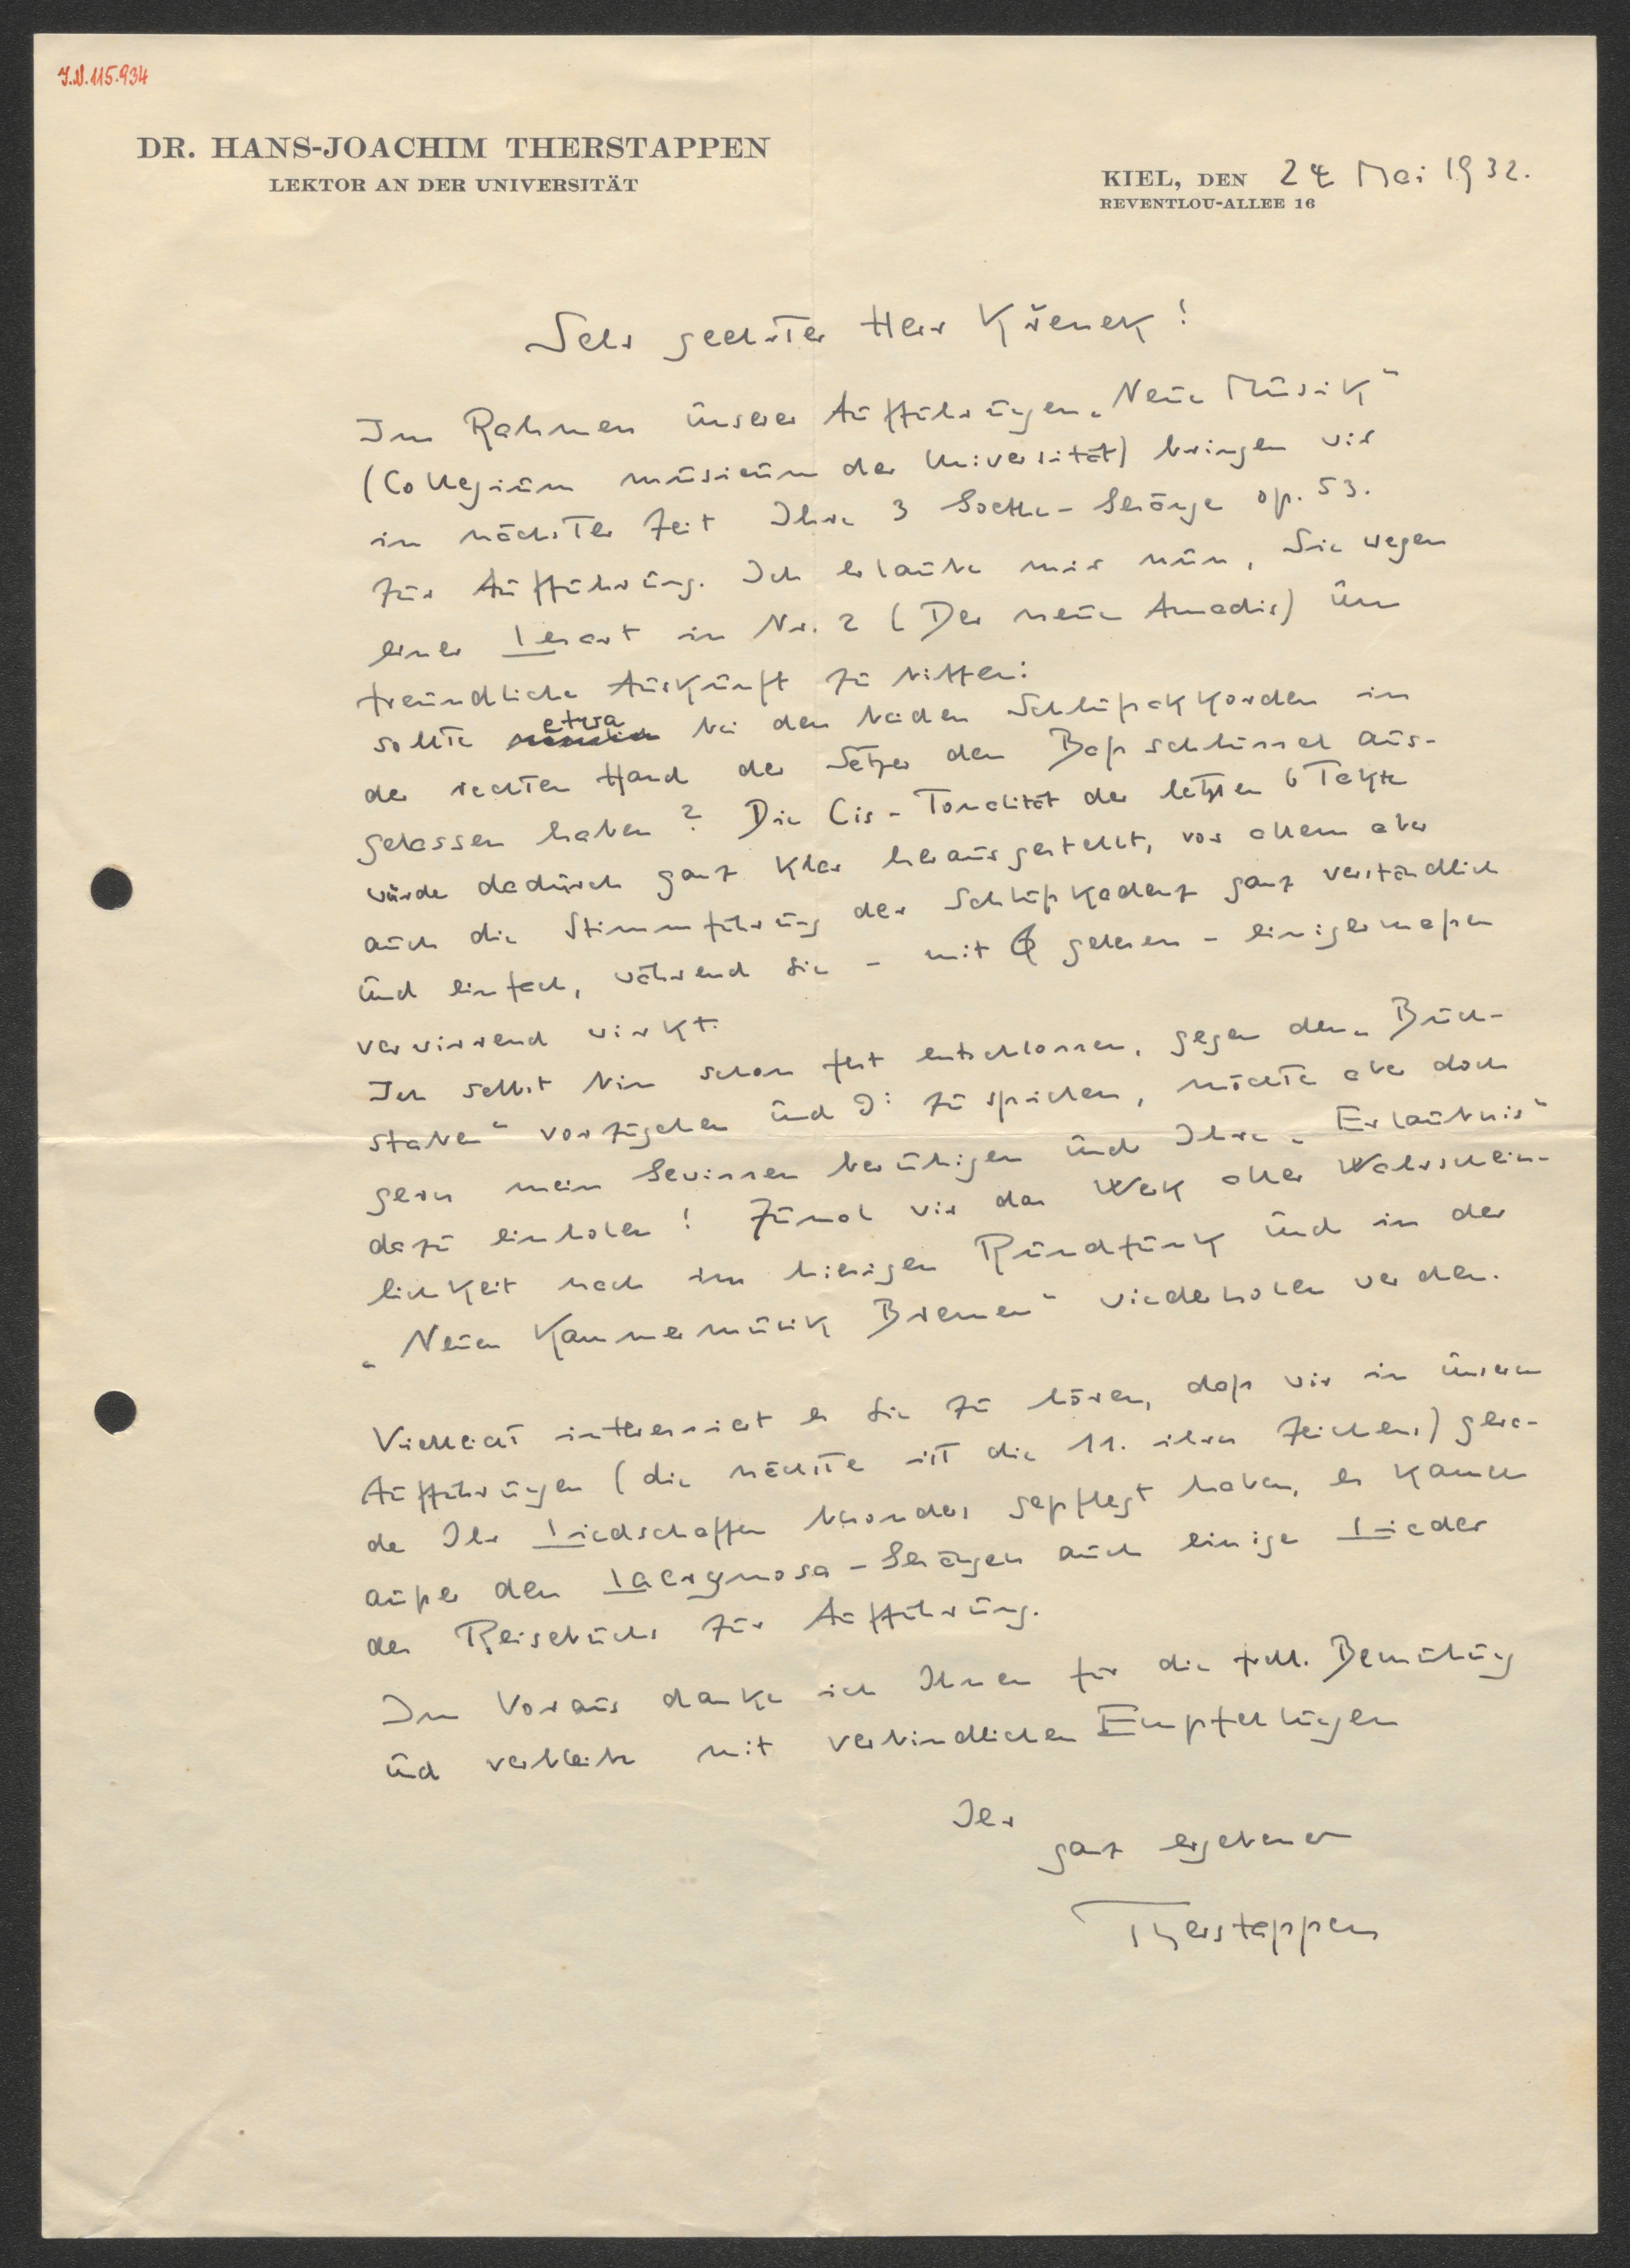 I.N.115.934
DR. HANS-JOACHIM THERSTAPPEN
LEKTOR AN DER UNIVERSITÄT
KIEL, DEN 24 Mai 1932.
REVENTLOU-ALLEE 16
Sehr geehrter Herr Křenek!
Im Rahmen unserer Aufführungen „Neue Musik“
(Collegium musicum der Universität) bringen wir
in nächster Zeit Ihre 3 Goethe-Gesänge op. 53.
zur Aufführung. Ich erlaube mir nun, Sie wegen
einer Lesart in Nr. 2 (Der neue Amadis) um
freundliche Auskunft zu bitten:
sollte etwa bei den beiden Schlußakkorden in
der rechten Hand der Setzer den Baßschlüssel aus-
gelassen haben? Die Cis-Tonalität der letzten 6 Takte
würde dadurch ganz klar herausgestellt, vor allem aber
auch die Stimmführung der Schlußkadenz ganz verständlich
und einfach, während sie - mit 𝄞 gelesen - einigermaßen
verwirrend wirkt.
Ich selbst bin schon fest entschlossen, gegen den „Buch-
staben“ vorzugehen und 𝄢 zu spielen, möchte aber doch
gern mein Gewissen beruhigen und Ihre „Erlaubnis“
dazu einholen! Zumal wir das Werk aller Wahrschein-
lichkeit nach im hiesigen Rundfunk und in der
„Neuen Kammermusik Bremen“ wiederholen werden.
Vielleicht interessiert es Sie zu hören, daß wir in unseren
Aufführungen (die nächste ist die 11. ihres Zeichens) gera-
de Ihr Liedschaffen besonders gepflegt haben, es kamen
außer den Lacrymosa-Gesängen auch einige Lieder
des Reisebuchs zur Aufführung.
Im Voraus danke ich Ihnen für die frdl. Bemühung
und verbleibe mit verbindlichen Empfehlungen
Ihr
ganz ergebener
Therstappen